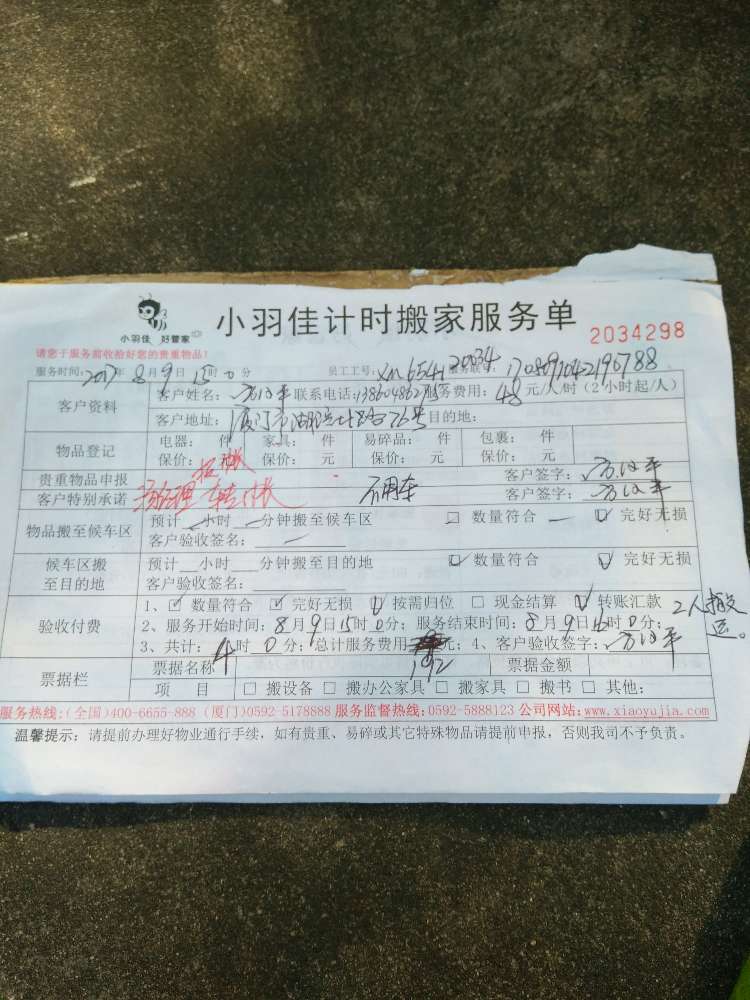 小羽佳 好管家
小羽佳计时搬家服务单
2034298
请您于服务前收拾好您的贵重物品!
服务时间:2017年8月9日15时0分 员工工号:XM6541 20034 服务联单:1708091042190788
客户资料
客户姓名: 联系电话: 服务费用:48元/人/时(2小时起/人)
客户地址:厦门市湖滨 76号 目的地:
物品登记
电器: 件 家具: 件 易碎品: 件 包裹: 件
保价: 元 保价: 元 保价: 元 保价: 元
贵重物品申报 客户签字:
客户特别承诺 经理 转付账 不用车 客户签字:
物品搬至候车区
预计 小时 分钟搬至候车区 □ 数量符合 ☑ 完好无损
客户验收签名:
候车区搬至目的地
预计 小时 分钟搬至目的地 ☑ 数量符合 ☑ 完好无损
客户验收签名:
验收付费
1、☑ 数量符合 ☑ 完好无损 ☑ 按需归位 □ 现金结算 ☑ 转账汇款 2人搬运。
2、服务开始时间:8月9日15时0分;服务结束时间:8月9日 时0分;
3、共计:4时0分;总计服务费用192元;4、客户验收签字:
票据栏
票据名称 票据金额
项 目 □ 搬设备 □ 搬办公家具 □ 搬家具 □ 搬书 □ 其他:
服务热线:(全国)400-6655-888 (厦门)0592-5178888 服务监督热线:0592-5888123 公司网站:www.xiaoyujia.com
温馨提示:请提前办理好物业通行手续,如有贵重、易碎或其它特殊物品请提前申报,否则我司不予负责。